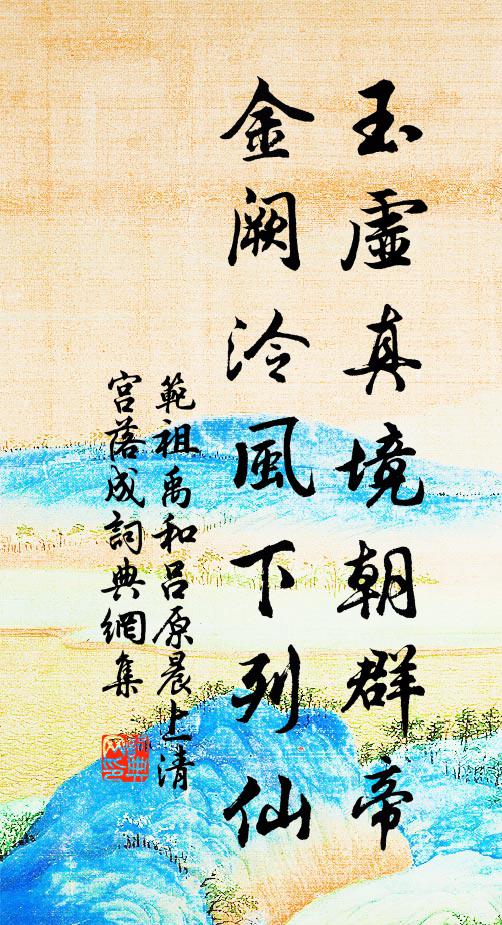 玉虛真境朝群帝
金闕泠風下列仙
範祖禹和呂原晨上清
宮落成詞典網集